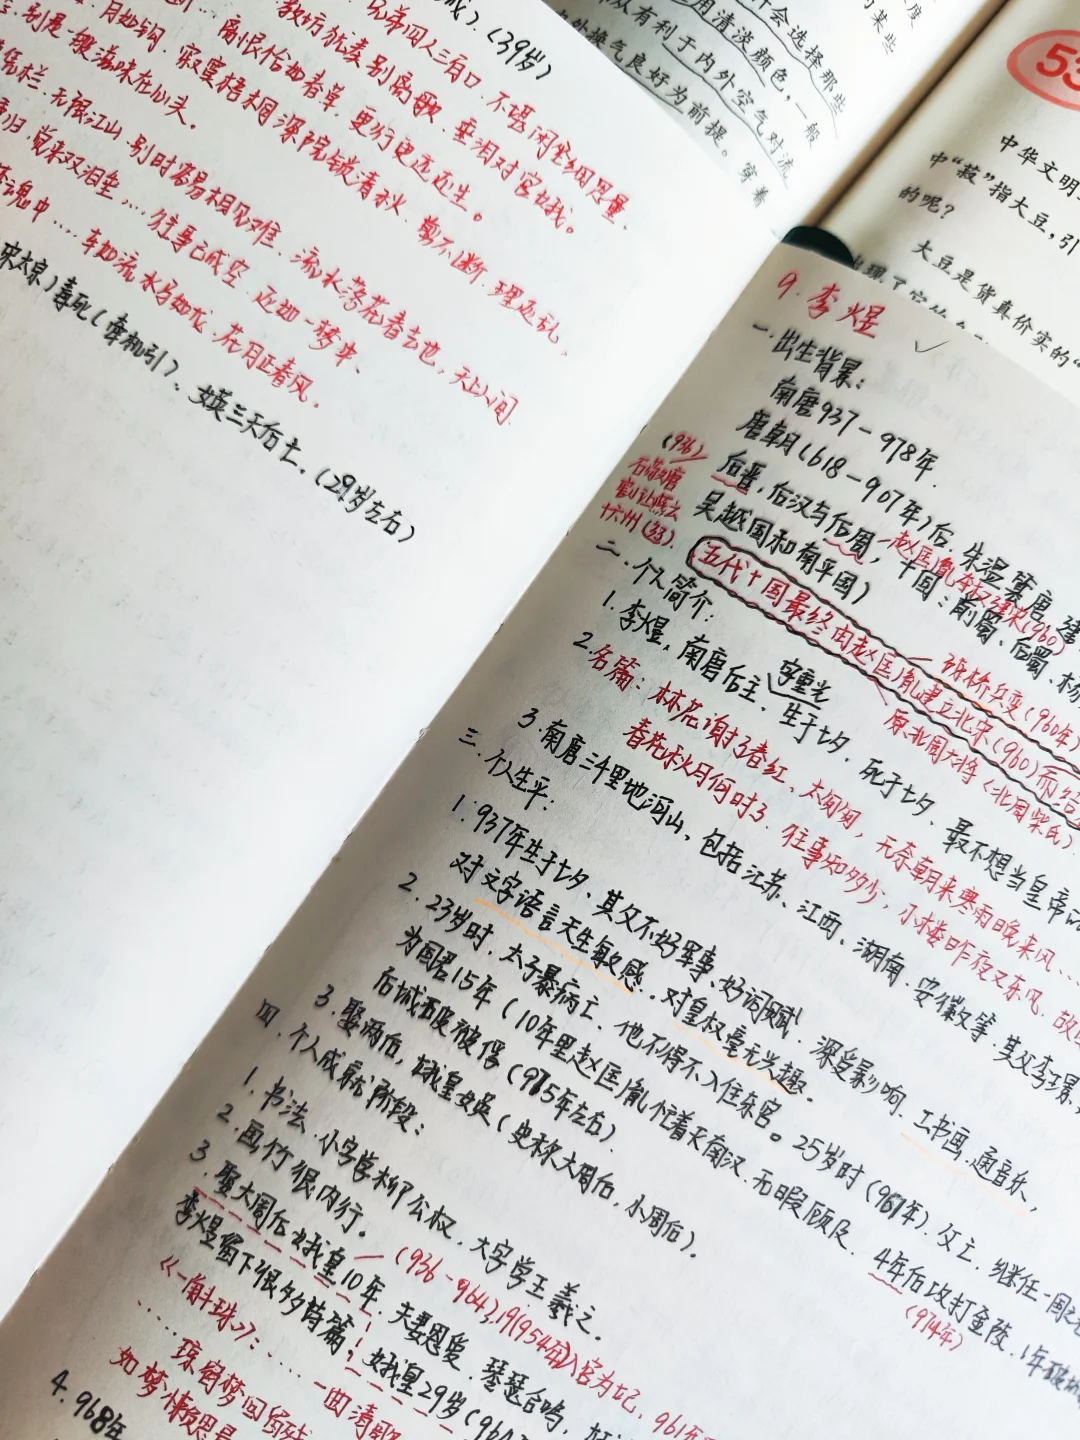 成)，(39岁)
兄弟四人三百口，不堪闲坐细思量。
教坊犹奏别离歌，垂泪对宫娥。
离恨恰如春草，更行更远还生。
月如钩，寂寞梧桐深院锁清秋，剪不断，理还乱，
别是一般滋味在心头。
凭栏，无限江山，别时容易相见难，流水落花春去也，天上人间
归，觉来双泪垂…，往事已成空，还如一梦中。
魂中……车如流水马如龙，花月正春风。
宋太宗)毒死(牵机引)、女英三天后亡，(29岁左右)
什会选择那些
用清淡颜色，一般
从有利于内外空气对流
内外换气良好为前提。穿着
的某些
53
中华文明
中“菽”指大豆，引
的呢？
大豆是货真价实的“
9. 李煜
一. 出生背景：
南唐937-978年.
唐朝(618-907年)后，朱温篡唐，建
后晋，后汉与后周，十国：前蜀、后蜀、杨
赵匡胤夺权建宋(960)
吴越国和南平国)
(936)
石敬瑭
割让燕云
十六州
五代十国最终由赵匡胤建立北宋(960)而结
陈桥兵变(960年)
原北周大将(北周柴氏)
二. 个人简介：
1. 李煜，南唐后主，生于七夕，死于七夕，最不想当皇帝
字重光
2. 名篇：林花谢了春红，太匆匆，无奈朝来寒雨晚来风…
春花秋月何时了，往事知多少，小楼昨夜又东风，故
3. 南唐三千里地河山，包括江苏、江西、湖南、安徽等，其父李璟
三. 个人生平：
1. 937年生于七夕、其父不好军事、好词赋，深受影响，工书画，通音乐，
对文字语言天生敏感，对皇权毫无兴趣。
2. 23岁时，太子暴病亡，他不得不入住东宫。25岁时(961年)，父亡，继任一国之
为国君15年(10年里赵匡胤忙着灭南汉，无暇顾及，4年后攻打金陵，1年破城
(974年)
后城破被俘(975年左右)
3. 娶两后，娥皇女英(史称大周后，小周后)。
四. 个人成就阶段：
1. 书法，小字学柳公权，大字学王羲之。
2. 画竹很内行。
3. 娶大周后娥皇10年，夫妻恩爱，琴瑟合鸣，
(936-964),19(954年)入宫为妃，961年
李煜留下很多诗篇；娥皇29岁(964
《一斛珠》：……一曲清歌
……琼窗梦回留残
如梦懒思量
4. 968年